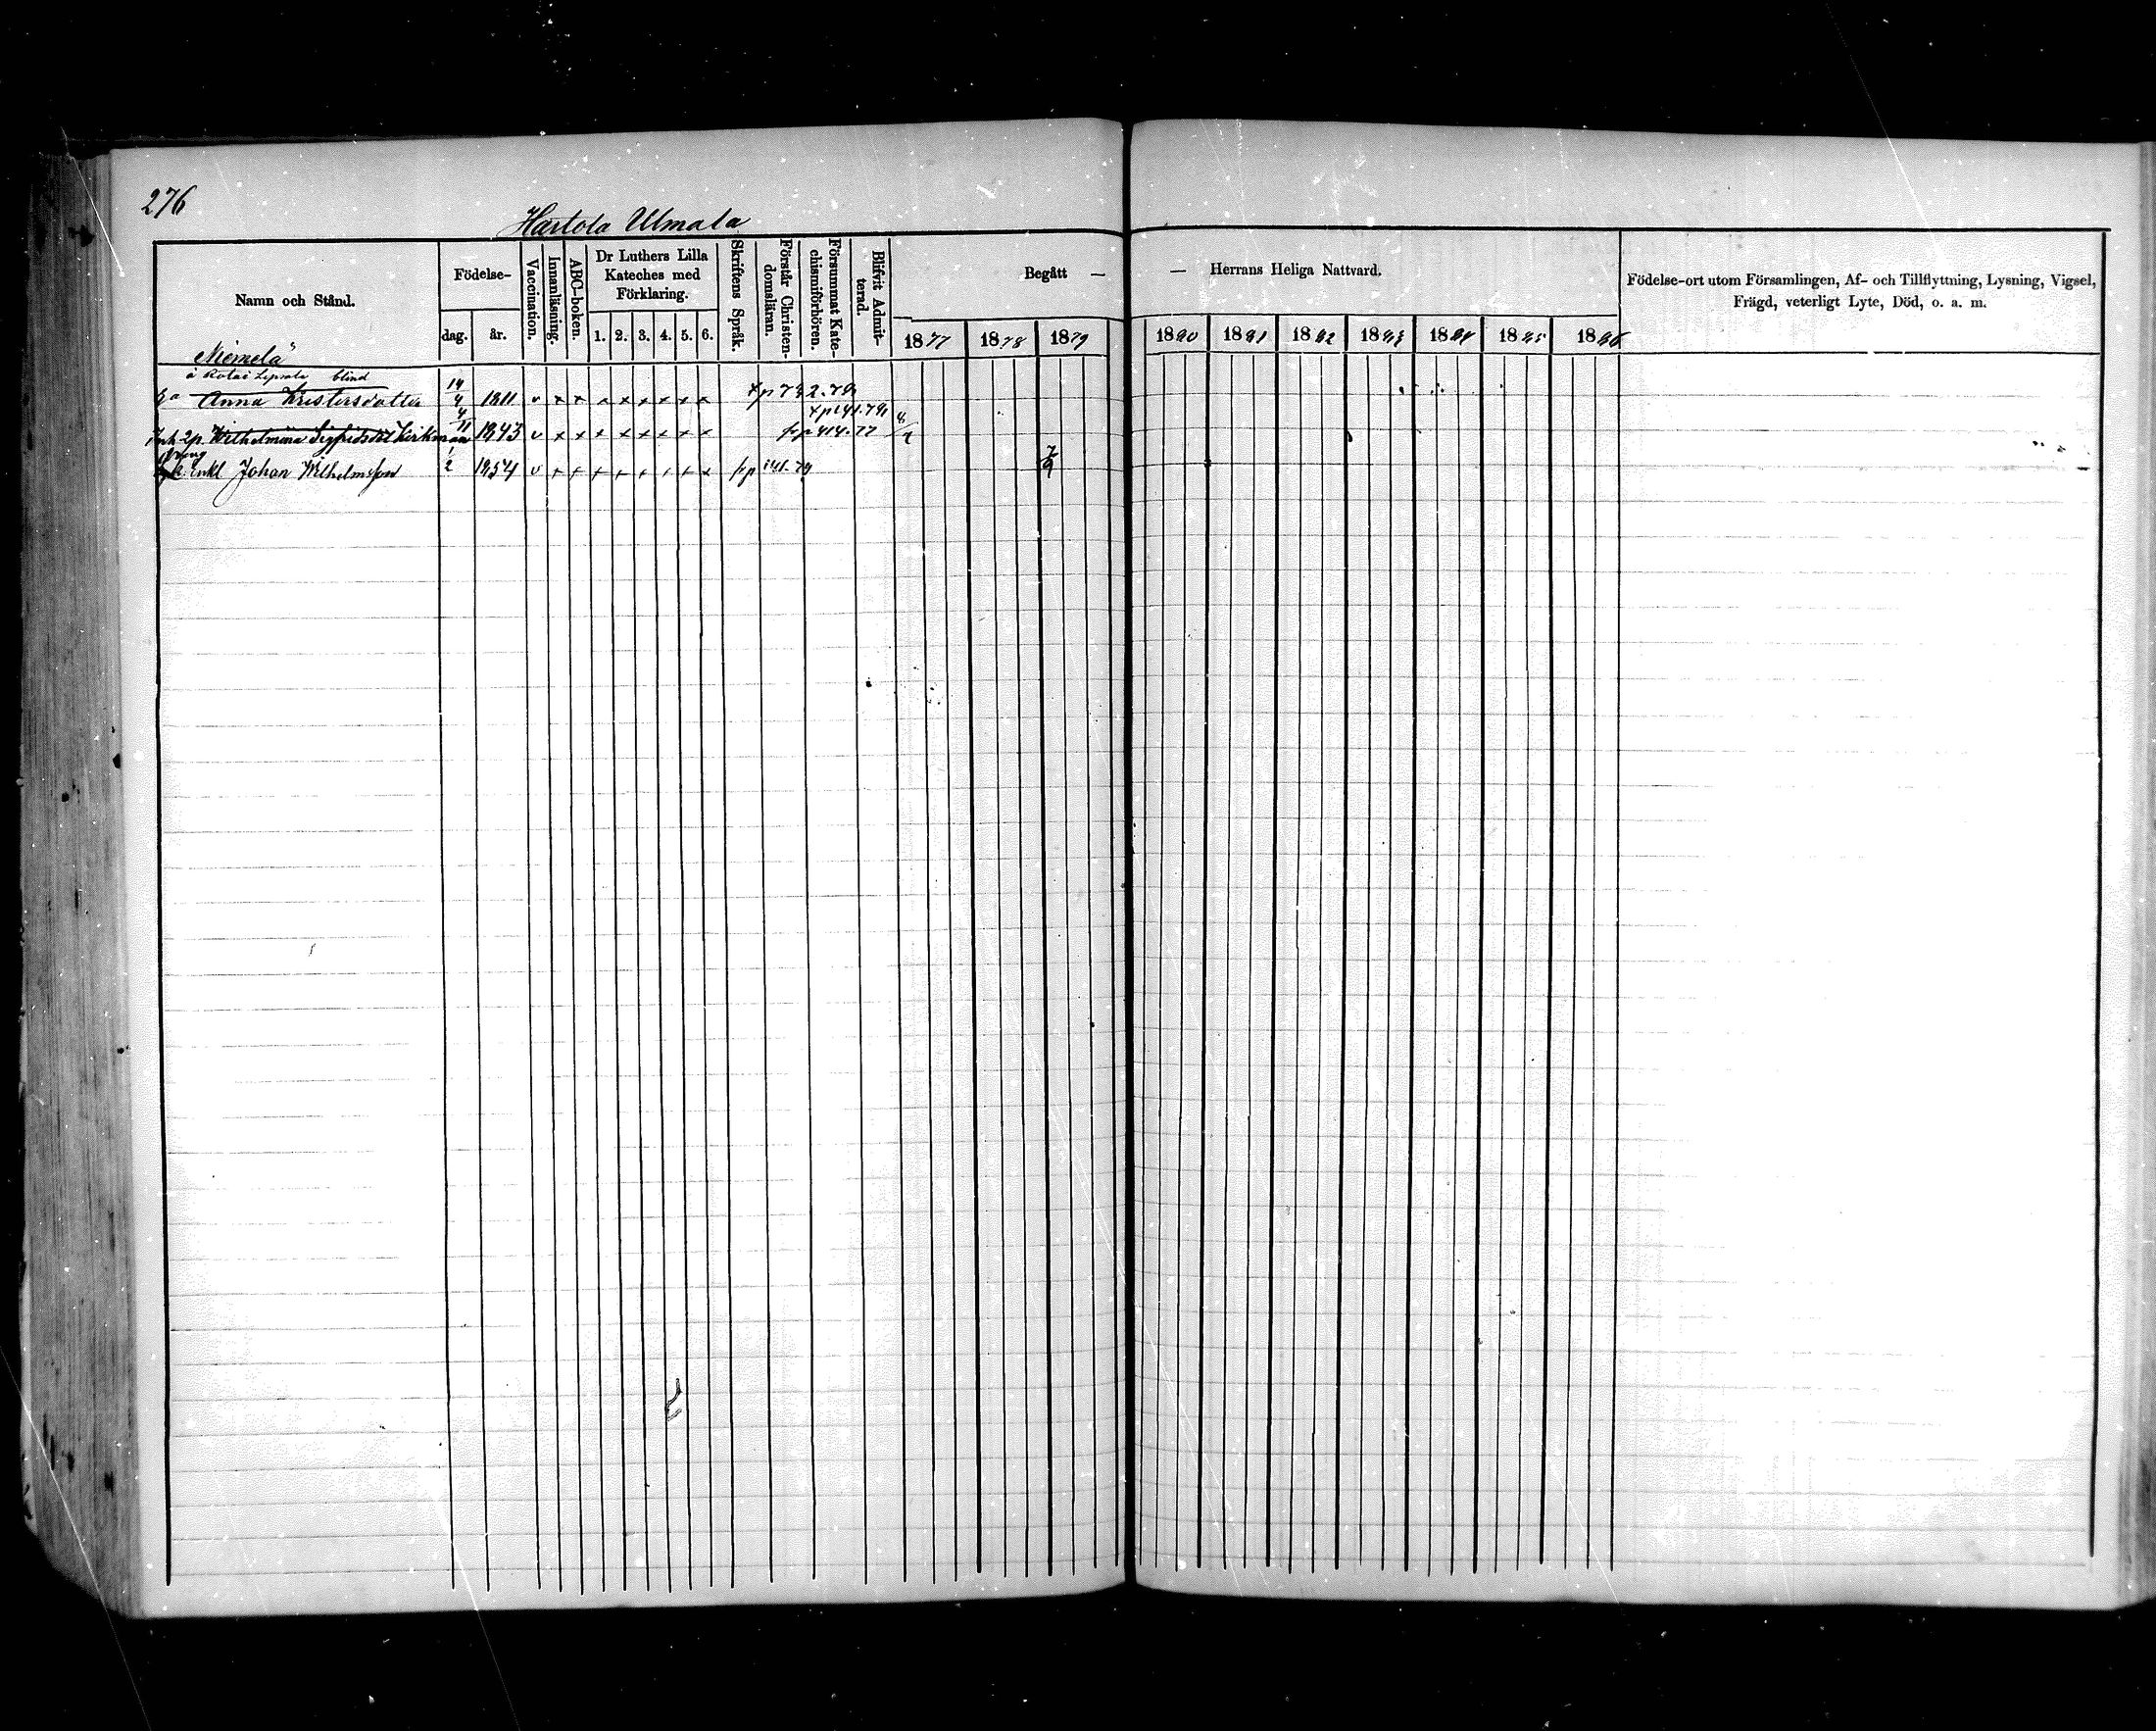 276
Hartola Ulmala
Namn och Stånd.
Födelse-
dag. år.
Vaccination.
Innanläsning.
ABC-boken.
Dr Luthers Lilla
Kateches med
Förklaring.
1. 2. 3. 4. 5. 6.
Skriftens Språk.
Förstår Christen-
domsläran.
Försummat Kate-
chismiförhören.
Blifvit Admit-
terad.
Begått —
— Herrans Heliga Nattvard.
1877 1878 1879 1880 1881 1882 1883 1884 1885 1886
Födelse-ort utom Församlingen, Af- och Tillflyttning, Lysning, Vigsel,
Frägd, veterligt Lyte, Död, o. a. m.
"Niemelä"
blind
Anna Kristersdotter 14/4 1811 v x x x x x x x x
Inh 2p. Wilhelmina Sigfridsdot Kirkman 4/11 1843 v x x x x x x x x frp 414.77
Enkl Johan Wilhelmsson 1/2 1854 v x x x x x x x x frp 141.79 7/9